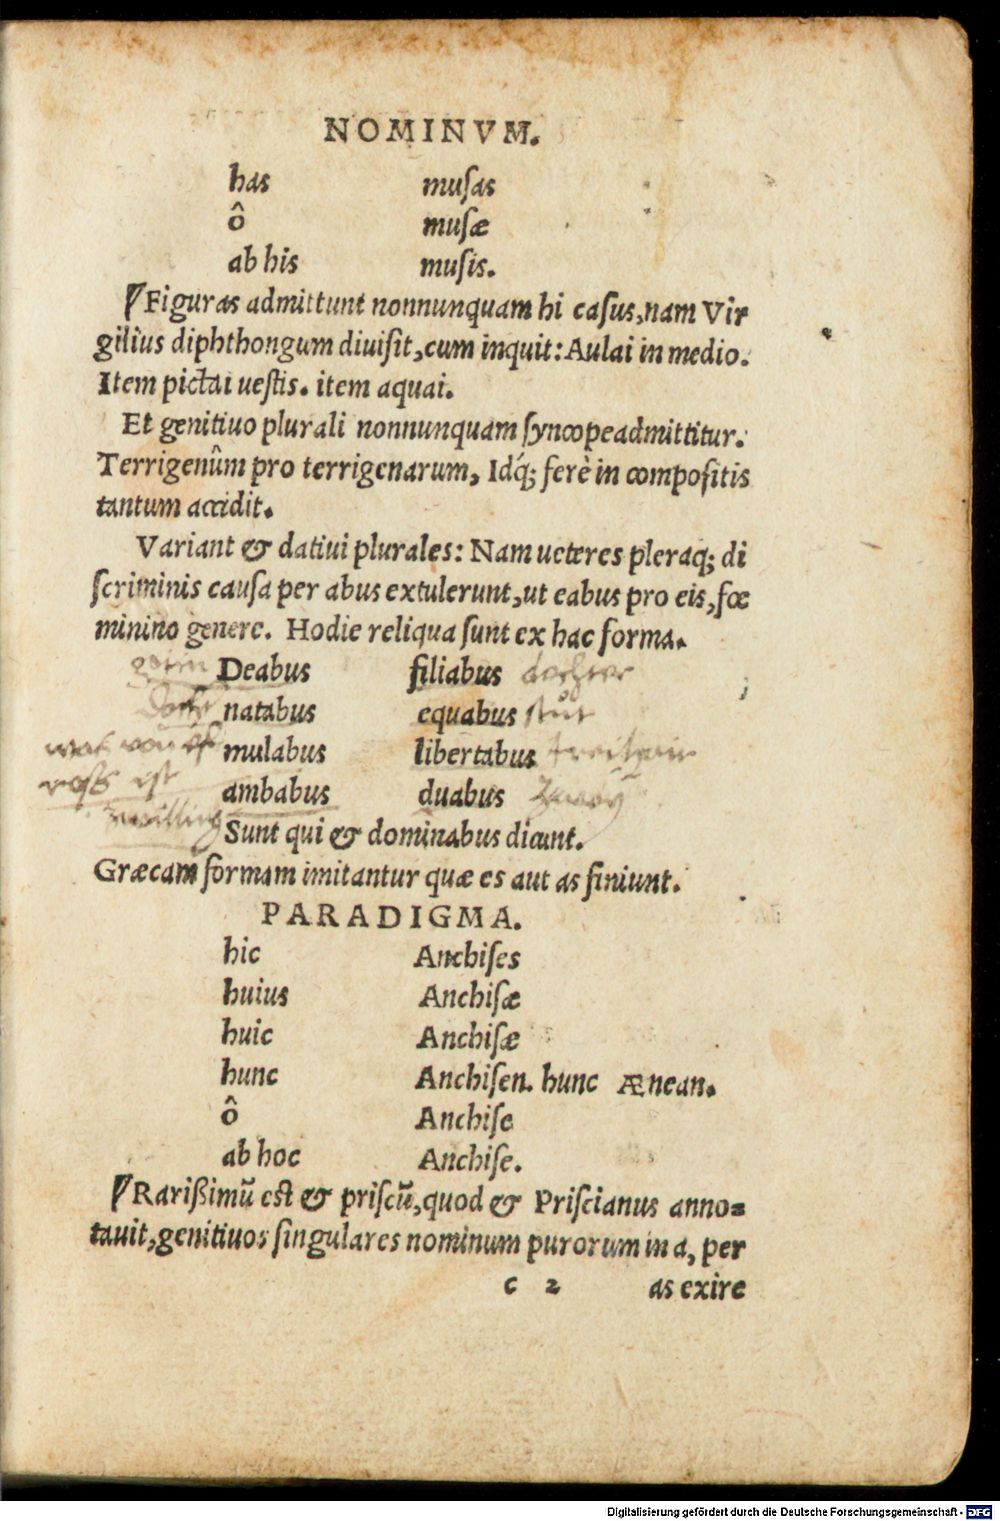 NOMINVM.
has muſas
ô muſæ
ab his muſis.
Figuras admittunt nonnunquam hi caſus, nam Vir
gilius diphthongum diuiſit, cum inquit: Aulai in medio.
Item pictai ueſtis. item aquai.
Et genitiuo plurali nonnunquam ſyncope admittitur.
Terrigenûm pro terrigenarum, Idq́; ferè in compoſitis
tantum accidit.
Variant & datiui plurales: Nam ueteres pleraq; di
ſcriminis cauſa per abus extulerunt, ut eabus pro eis, fœ
minino genere. Hodie reliqua ſunt ex hac forma.
Deabus filiabus
natabus equabus
mulabus libertabus
ambabus duabus
zwilling Sunt qui & dominabus dicunt.
Græcam formam imitantur quæ es aut as finiunt.
PARADIGMA.
hic Anchiſes
huius Anchiſæ
huic Anchiſæ
hunc Anchiſen. hunc Ænean.
ô Anchiſe
ab hoc Anchiſe.
Rarißimū eſt & priſcū, quod & Priſcianus anno-
tauit, genitiuos ſingulares nominum purorum in a, per
c 2 as exire
Digitalisierung gefördert durch die Deutsche Forschungsgemeinschaft - DFG